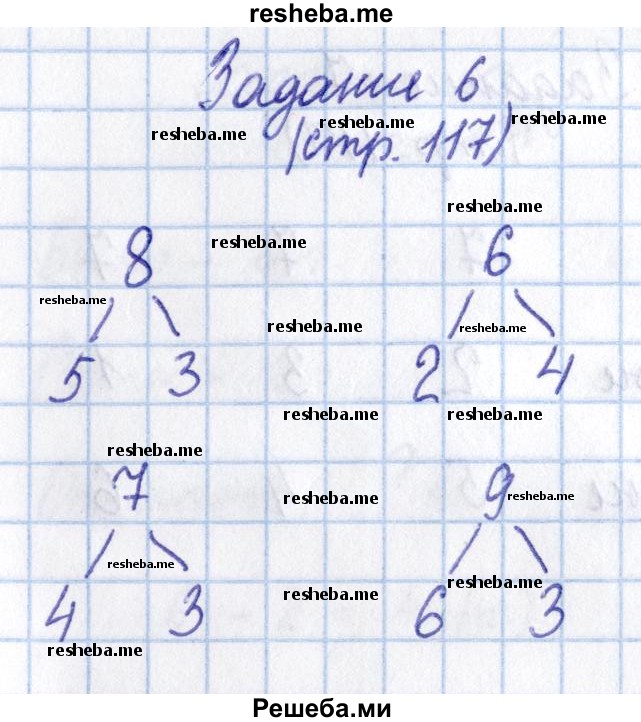 resheba.me
Задание 6
resheba.me resheba.me resheba.me
(стр. 117)
resheba.me
resheba.me
8 6
resheba.me
resheba.me resheba.me
5 3 2 4
resheba.me resheba.me
resheba.me
7 9
resheba.me resheba.me
resheba.me
resheba.me
resheba.me
4 3 6 3
resheba.me
Решеба.ми